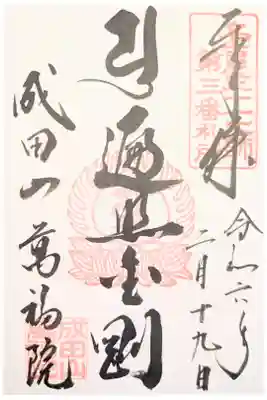 奉拝
令和六年
二月十九日
遍照金剛
成田山 萬福院
第三番札所
成田山